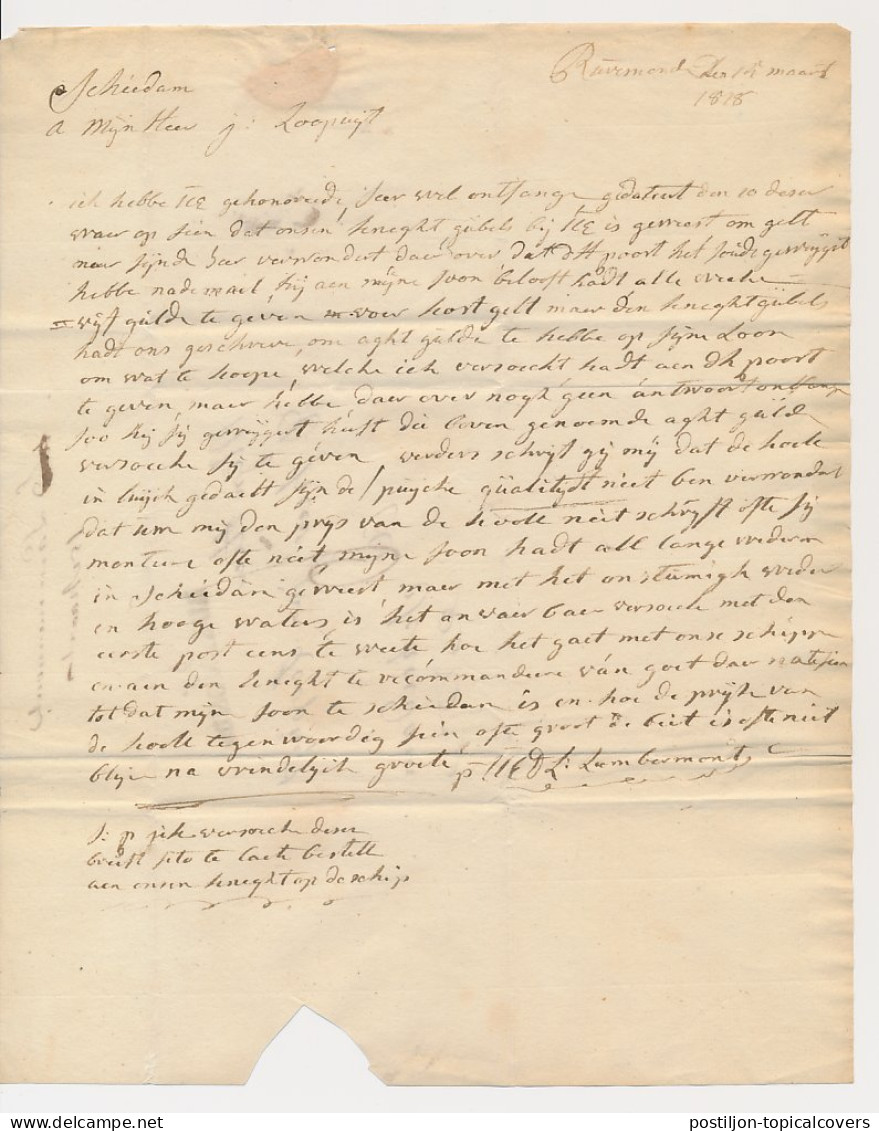 Ruremond den 14 maart
1818
Schiedam
a Mijn Heer j: Loopuijt
ick hebbe UE gehonoreerde seer wel ontfange gedateert den 10 deser
waer op sien dat onsen kneght gubels bij UE is geweest om gelt
mer sijnde seer verwondert daer over dat dH poort het soude geweijgert
hebbe nademael hij aen mijne soon belooft hadt alle weeke
vijf gulde te geven voor kost gelt maer den kneght gubels
hadt ons geschreve, om aght gulde te hebbe op sijne Loon
om wat te koope, welche ick versocht hadt aen dh poort
te geven, maer hebbe daer over nogh geen antwoort ontfange
soo hij sij geweijgert heeft die boven genoemde aght gulde
versoeche sij te geven verders schrijf gij mij dat de koole
in luijck gedaelt sijn de puijcke qualiteijt niet ben verwondert
dat mij den prijs van de koole niet schrijft ofte sij
montere ofte niet, mijne soon hadt all lange wederom
in schiedam geweest, maer met het onstuimigh weder
en hooge waters is het onwaer baer versoeche met den
eerste post eens te weete hoe het gaet met onse schippe
en aen den kneght te recommandere van goet daer na te sien
tot dat mijn soon te schiedam is en hoe de prijse van
de koole tegenwoordig sien, ofte groot de is ofte niet
blijve na vrindelijck groete p: UED L: Lambermont
S: p ick versoeche deser
brieff sito te laete bestelle
aen onsen kneght op de schip
postiljon-topicalcovers